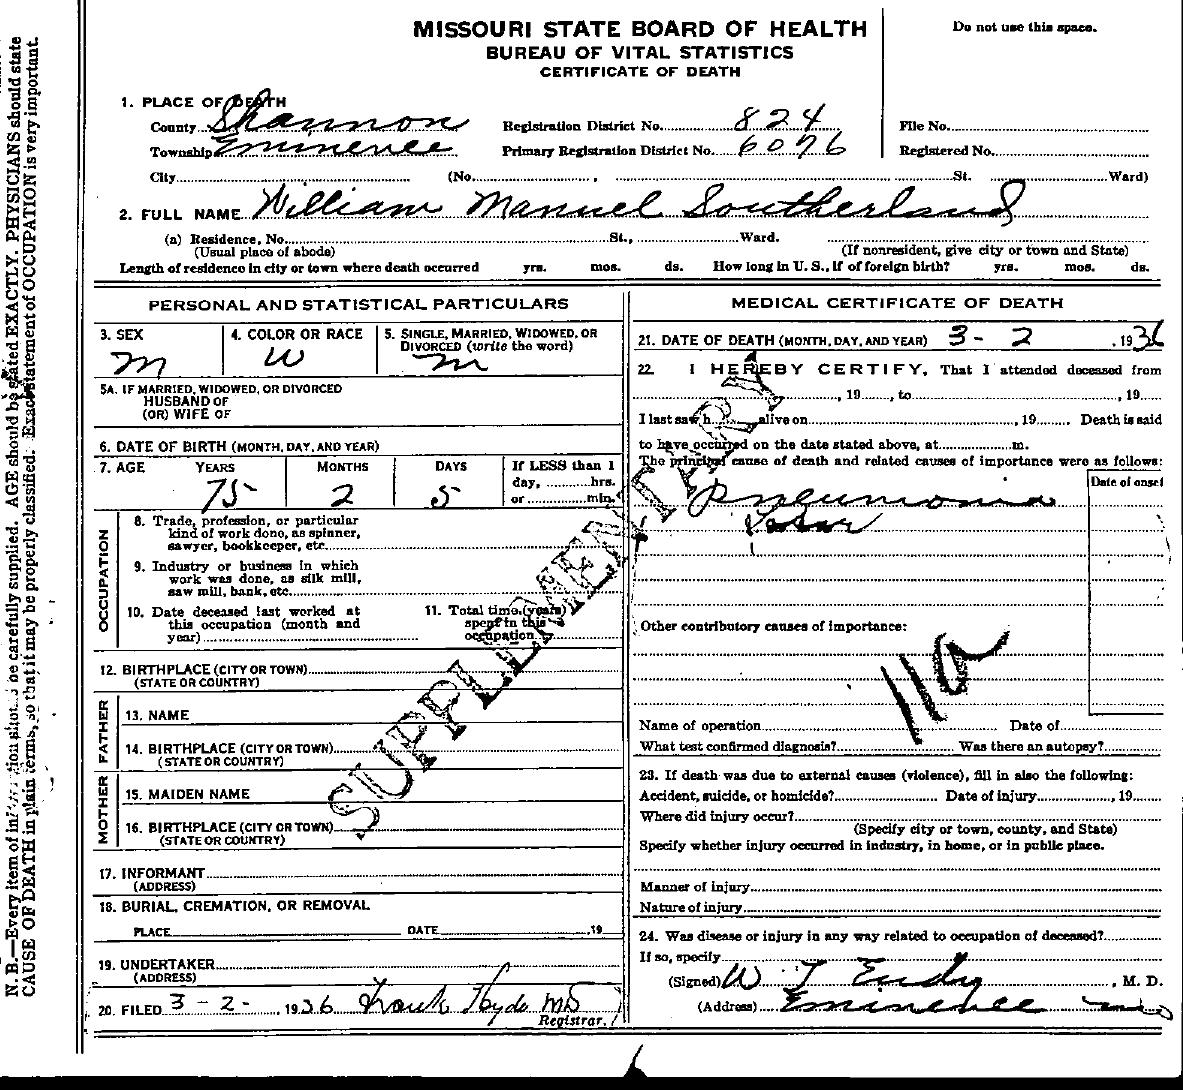 MISSOURI STATE BOARD OF HEALTH
BUREAU OF VITAL STATISTICS
CERTIFICATE OF DEATH
Do not use this space.
1. PLACE OF DEATH
County Shannon Registration District No. 824 File No.
Township Eminence Primary Registration District No. 6076 Registered No.
City (No. , St. Ward)
2. FULL NAME William Manuel Southerland
(a) Residence, No. St., Ward.
(Usual place of abode) (If nonresident, give city or town and State)
Length of residence in city or town where death occurred yrs. mos. ds. How long in U. S., if of foreign birth? yrs. mos. ds.
PERSONAL AND STATISTICAL PARTICULARS
3. SEX 4. COLOR OR RACE 5. SINGLE, MARRIED, WIDOWED, OR
DIVORCED (write the word)
M W M
5A. IF MARRIED, WIDOWED, OR DIVORCED
HUSBAND OF
(OR) WIFE OF
6. DATE OF BIRTH (MONTH, DAY, AND YEAR)
7. AGE YEARS MONTHS DAYS If LESS than 1
day, hrs.
or min.
75 2 5
OCCUPATION
8. Trade, profession, or particular
kind of work done, as spinner,
sawyer, bookkeeper, etc.
9. Industry or business in which
work was done, as silk mill,
saw mill, bank, etc.
10. Date deceased last worked at
this occupation (month and
year)
11. Total time (years)
spent in this
occupation
12. BIRTHPLACE (CITY OR TOWN)
(STATE OR COUNTRY)
FATHER
13. NAME
14. BIRTHPLACE (CITY OR TOWN)
(STATE OR COUNTRY)
MOTHER
15. MAIDEN NAME
16. BIRTHPLACE (CITY OR TOWN)
(STATE OR COUNTRY)
17. INFORMANT
(ADDRESS)
18. BURIAL, CREMATION, OR REMOVAL
PLACE DATE , 19
19. UNDERTAKER
(ADDRESS)
20. FILED 3-2-, 1936 Frank Hyde MD
Registrar.
SUPPLEMENTARY
MEDICAL CERTIFICATE OF DEATH
21. DATE OF DEATH (MONTH, DAY, AND YEAR) 3-2 , 1936
22. I HEREBY CERTIFY, That I attended deceased from
, 19 , to , 19 .
I last saw h alive on , 19 Death is said
to have occurred on the date stated above, at m.
The principal cause of death and related causes of importance were as follows:
Date of onset
Pneumonia
Lobar
Other contributory causes of importance:
Name of operation Date of
What test confirmed diagnosis? Was there an autopsy?
23. If death was due to external causes (violence), fill in also the following:
Accident, suicide, or homicide? Date of injury , 19
Where did injury occur?
(Specify city or town, county, and State)
Specify whether injury occurred in industry, in home, or in public place.
Manner of injury
Nature of injury
24. Was disease or injury in any way related to occupation of deceased?
If so, specify
(Signed) W T Eudy , M. D.
(Address) Eminence Mo
N. B.—Every item of information should be carefully supplied. AGE should be stated EXACTLY. PHYSICIANS should state
CAUSE OF DEATH in plain terms, so that it may be properly classified. Exact statement of OCCUPATION is very important.